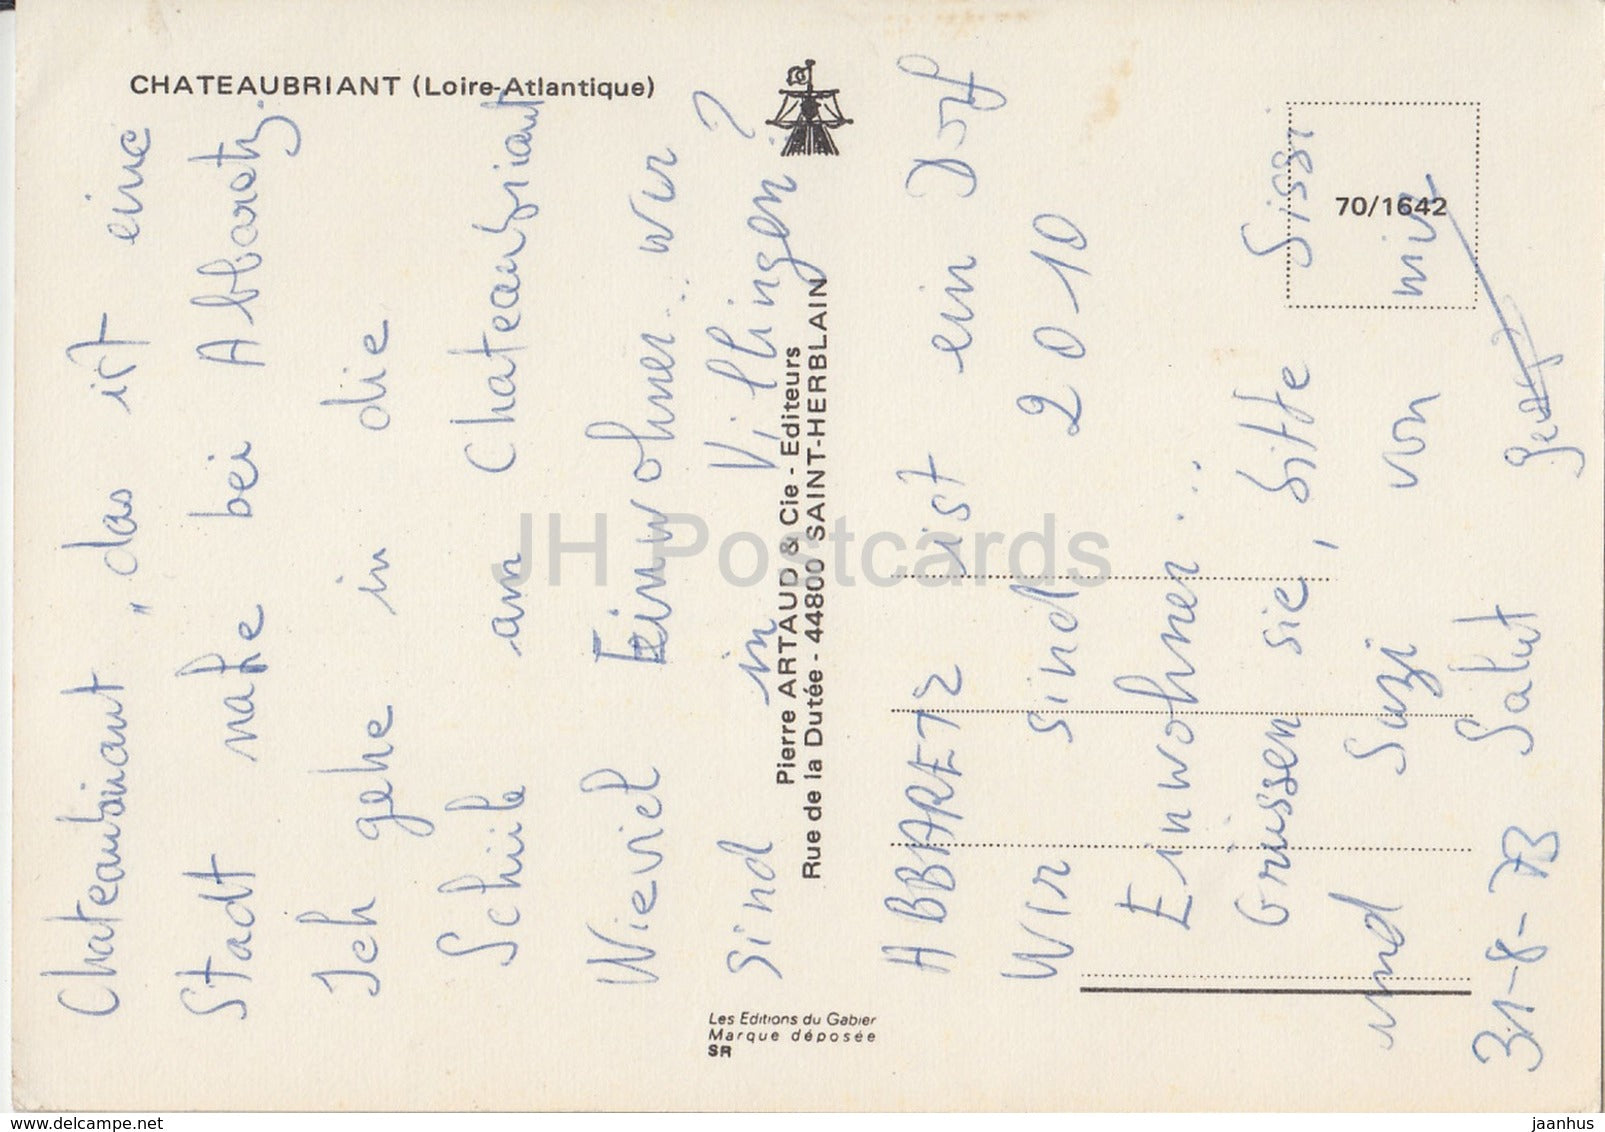 CHATEAUBRIANT (Loire-Atlantique)
70/1642
Chateaubriant, das ist eine
Stadt nahe bei Abbaretz.
Ich gehe in die
Schule an Chateaubriant
Wieviel Einwohner.. wir
sind in Villingen ?
ABBARETZ ist ein Dorf
Wir sind 2010
Einwohner...
Grüssen sie, bitte Sissi
und Suzi von mir
31-8-73 Salut
Pierre ARTAUD & Cie - Editeurs
Rue de la Dutée - 44800 SAINT-HERBLAIN
Les Editions du Gabier
Marque déposée
SR
JH Postcards
www.delcampe.net
jaanhus